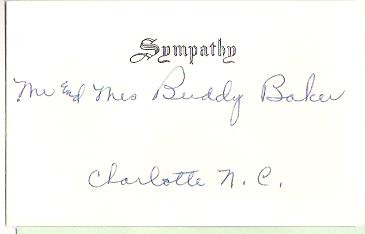 Sympathy
Mr End Mrs Buddy Baker
Charlotte N. C.